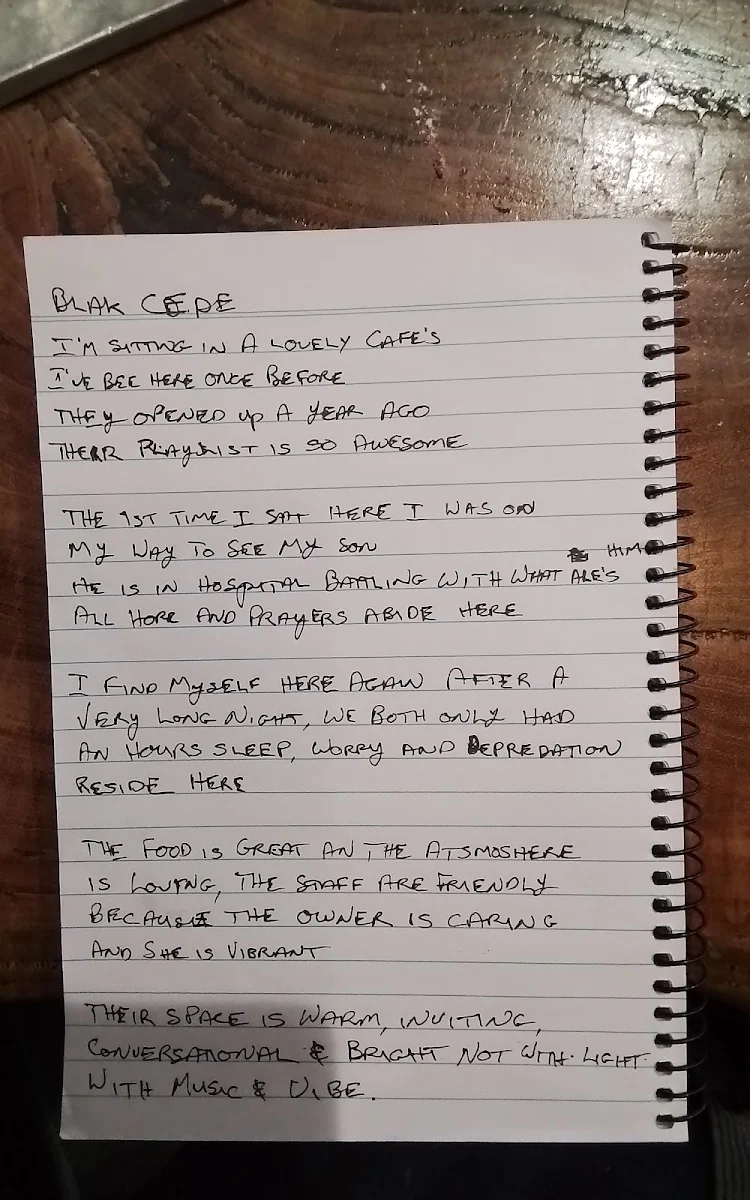 BLAK CEDE
I'M SITTING IN A LOVELY CAFE'S
I'VE BEE HERE ONCE BEFORE
THEY OPENED UP A YEAR AGO
THEIR PLAYLIST IS SO AWESOME
THE 1ST TIME I SAT HERE I WAS ON
MY WAY TO SEE MY SON
HIM
HE IS IN HOSPITAL BATTLING WITH WHAT ALE'S
ALL HOPE AND PRAYERS ABIDE HERE
I FIND MYSELF HERE AGAIN AFTER A
VERY LONG NIGHT, WE BOTH ONLY HAD
AN HOURS SLEEP, WORRY AND DEPREDATION
RESIDE HERE
THE FOOD IS GREAT AN THE ATSMOSHERE
IS LOVING, THE STAFF ARE FRIENDLY
BECAUSE THE OWNER IS CARING
AND SHE IS VIBRANT
THEIR SPACE IS WARM, INVITING,
CONVERSATIONAL & BRIGHT NOT WITH LIGHT
WITH MUSIC & VIBE.